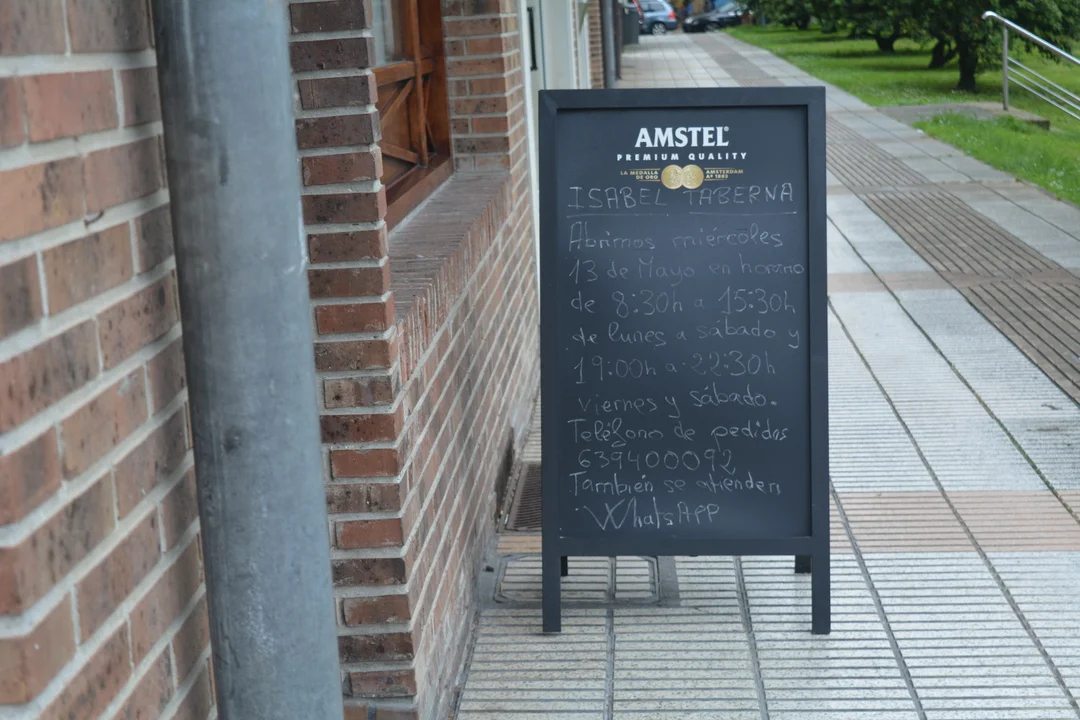 AMSTEL
PREMIUM QUALITY
LA MEDALLA DE ORO AMSTERDAM Aº 1883
ISABEL TABERNA
Abrimos miércoles
13 de Mayo en horario
de 8:30h a 15:30h
de lunes a sábado y
19:00h a 22:30h
viernes y sábado.
Teléfono de pedidos
639400092
También se atienden
WhatsAPP